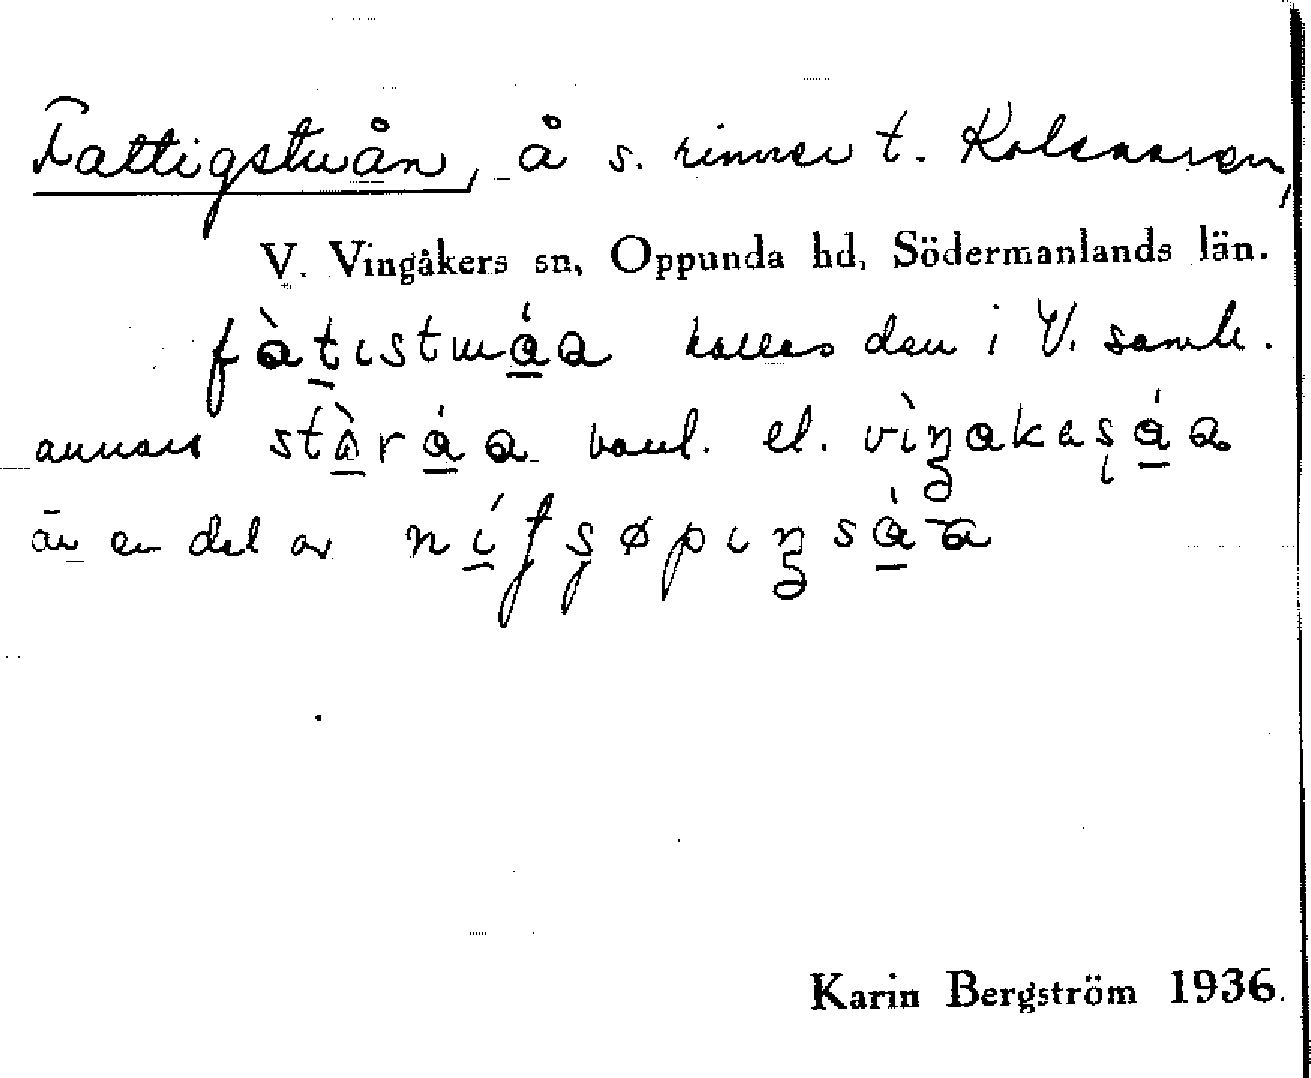 Fattigstuån, å s. rinner t. Kolsnaren,
V. Vingåkers sn, Oppunda hd, Södermanlands län.
fàtɩstuáa kallas den i V. samh.
annars stòráa vanl. el. vìŋakaʂáa
är en del av nífʂøpɩŋsáa
Karin Bergström 1936.